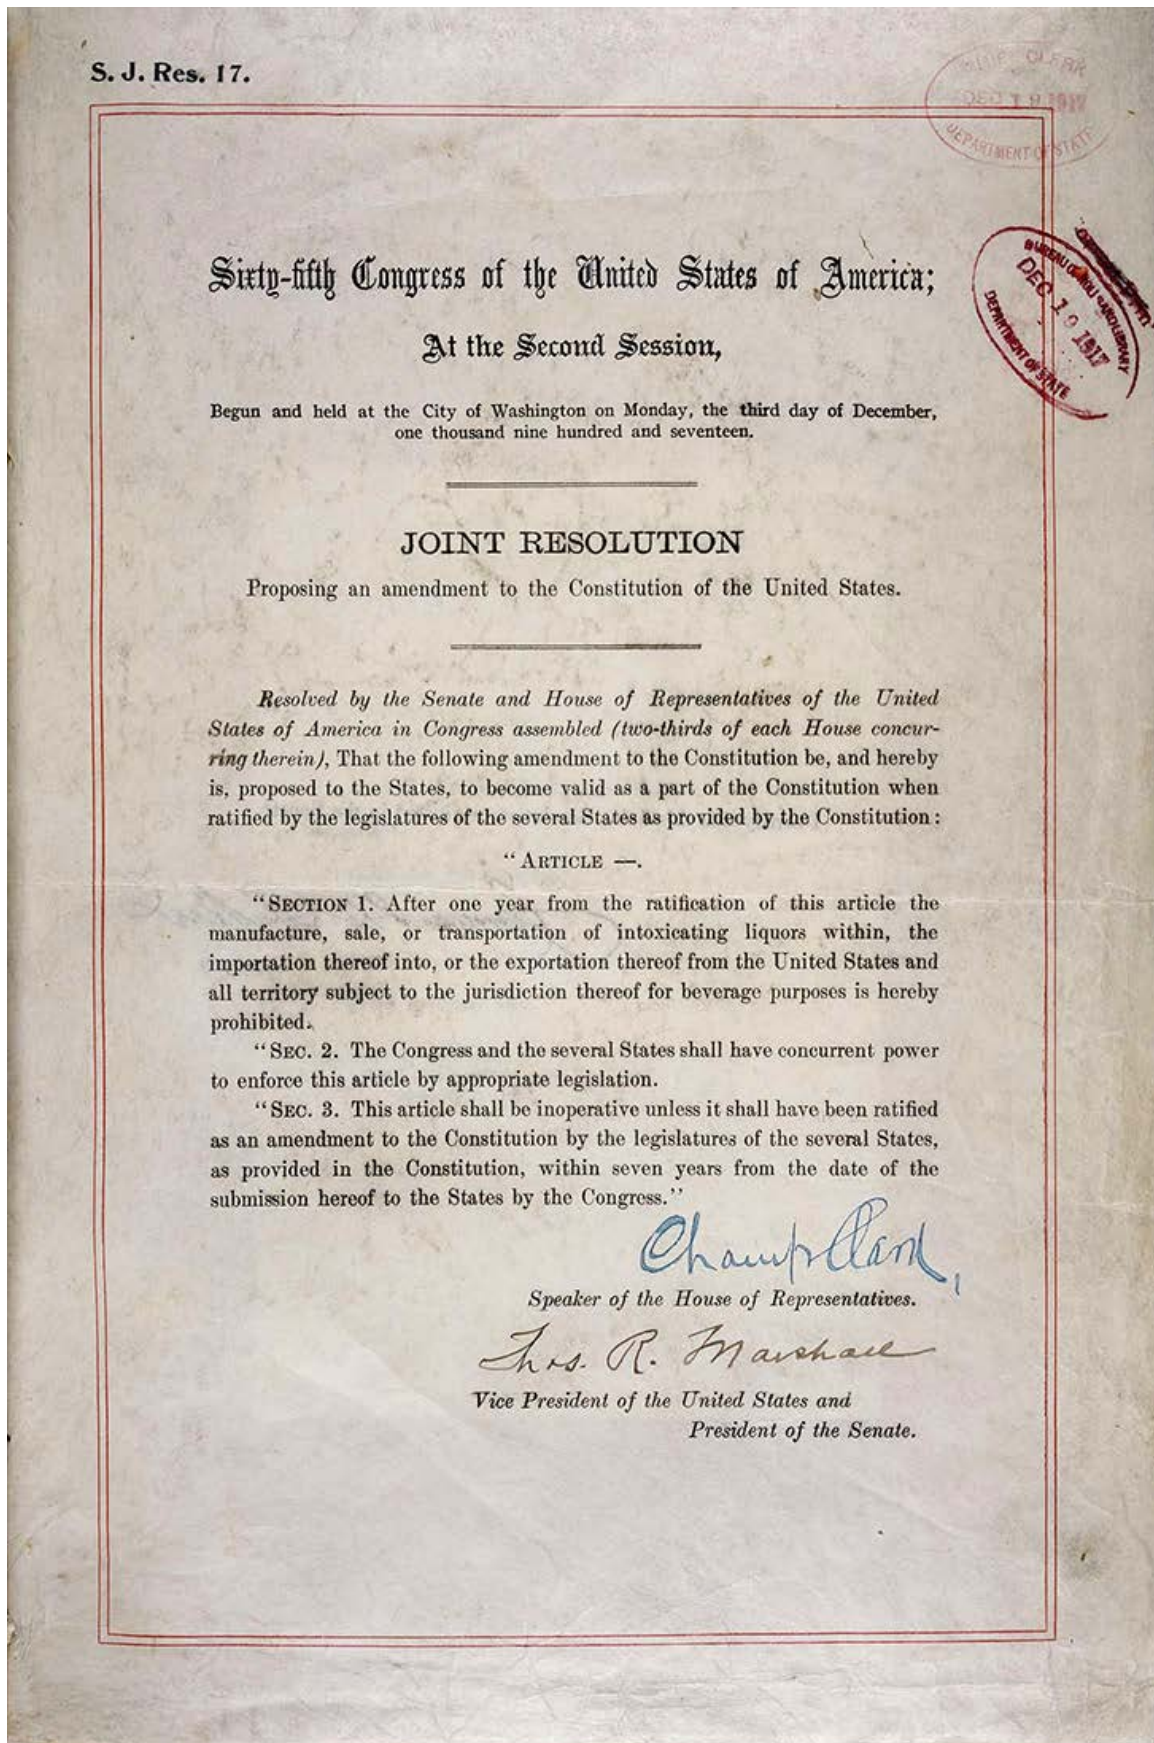 S. J. Res. 17.
CLERK
DEC 19 1917
DEPARTMENT OF STATE
BUREAU OF LIBRARY
DEC 19 1917
DEPARTMENT OF STATE
Sixty-fifth Congress of the United States of America;
At the Second Session,
Begun and held at the City of Washington on Monday, the third day of December,
one thousand nine hundred and seventeen.
JOINT RESOLUTION
Proposing an amendment to the Constitution of the United States.
Resolved by the Senate and House of Representatives of the United
States of America in Congress assembled (two-thirds of each House concur-
ring therein), That the following amendment to the Constitution be, and hereby
is, proposed to the States, to become valid as a part of the Constitution when
ratified by the legislatures of the several States as provided by the Constitution:
"ARTICLE —.
"SECTION 1. After one year from the ratification of this article the
manufacture, sale, or transportation of intoxicating liquors within, the
importation thereof into, or the exportation thereof from the United States and
all territory subject to the jurisdiction thereof for beverage purposes is hereby
prohibited.
"SEC. 2. The Congress and the several States shall have concurrent power
to enforce this article by appropriate legislation.
"SEC. 3. This article shall be inoperative unless it shall have been ratified
as an amendment to the Constitution by the legislatures of the several States,
as provided in the Constitution, within seven years from the date of the
submission hereof to the States by the Congress."
Champ Clark,
Speaker of the House of Representatives.
Thos. R. Marshall
Vice President of the United States and
President of the Senate.